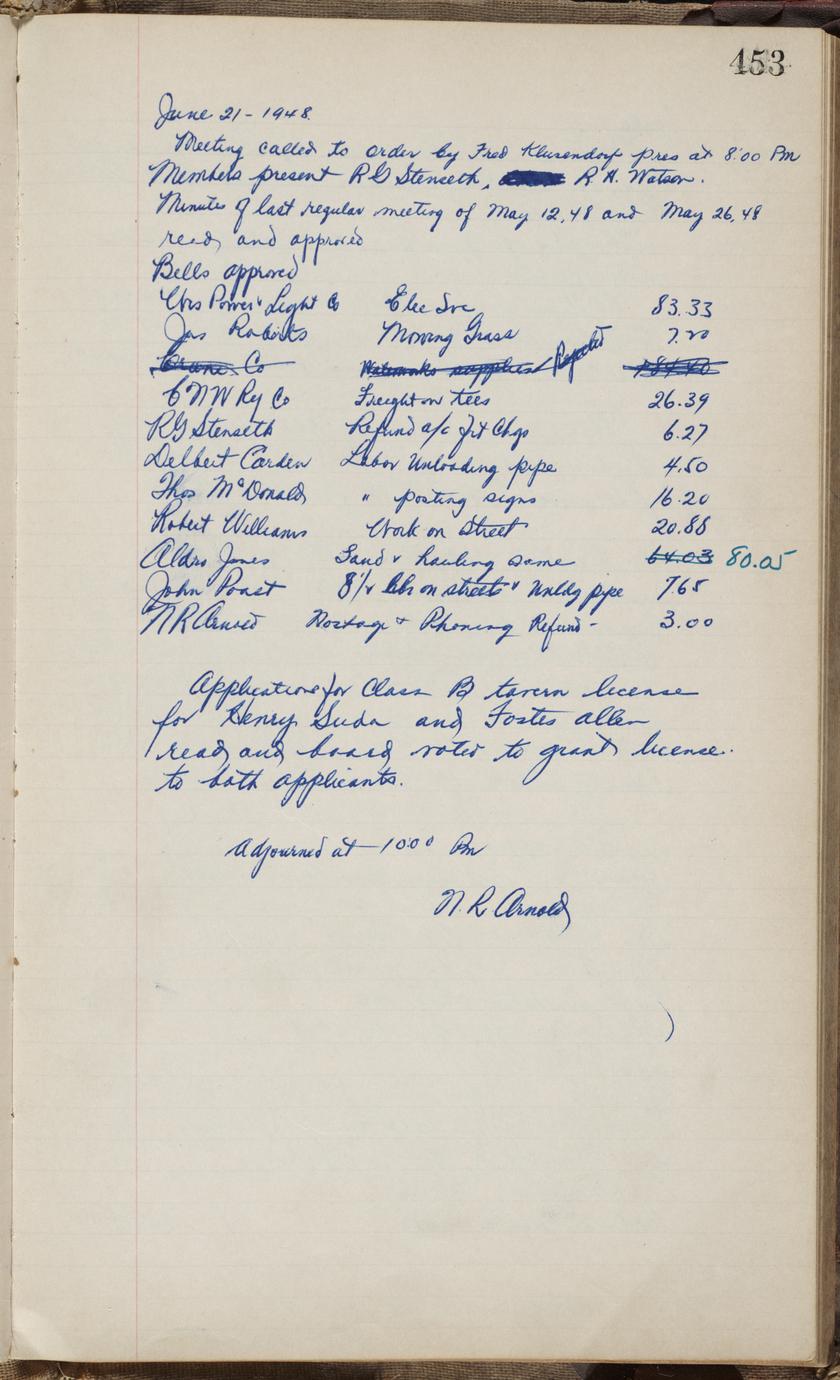 453
June 21 - 1948.
Meeting called to order by Fred Klusendorf pres at 8:00 Pm
Members present R G Stenseth, R. H. Watson.
Minutes of last regular meeting of May 12, 48 and May 26, 48
read and approved
Bells approved
Wis Power & Light Co Elec Svc 83.33
Jas Roberts Mowing Grass 7.20
Crane Co Waterworks supplies Rejected
C N W Ry Co Freight on tees 26.39
R G Stenseth Refund a/c Frt Chgs 6.27
Delbert Carden Labor Unloading pipe 4.50
Thos McDonald " posting signs 16.20
Robert Williams Work on Street 20.88
Aldro Jones Sand & hauling same 64.03 80.05
John Poast on streets & Unldg pipe 7.65
N R Arnold Postage & Phoning Refund - 3.00
Application for Class B tavern license
for Henry Suda and Fostes allen
read and board voted to grant license.
to both applicants.
Adjourned at 10:00 Pm
N. R. Arnold